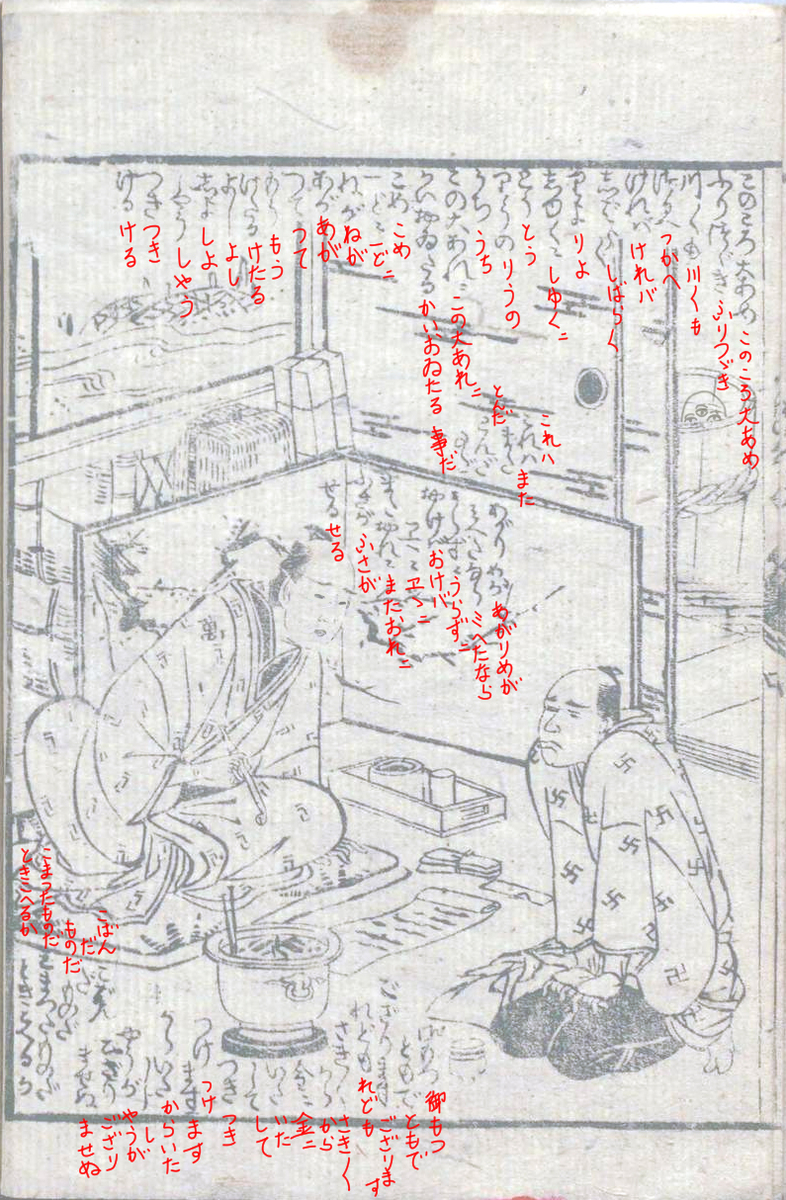 このころ大あめ
ふりつゞき
川〱も
つかへ
けれバ
しばらく
りよ
しゆくニ
とう
りうの
うち
この大あれニ
かいおゐたる
こめ
一どニ
ねが
あが
つて
もう
けたる
よし
しよ
しやう
つき
ける
これハ
また
とんだ
事だ
あがりめが
ミへたなら
うらずニ
おけバ
ヱゝニ
またおれニ
ふさが
せる
こばん
だ
ものだ
こまつたものだ
ときこへるか
御もつ
ともで
ござります
れども
さき〱
から
金ニ
いた
して
つき
つけます
からいた
し
やうが
ござり
ませぬ